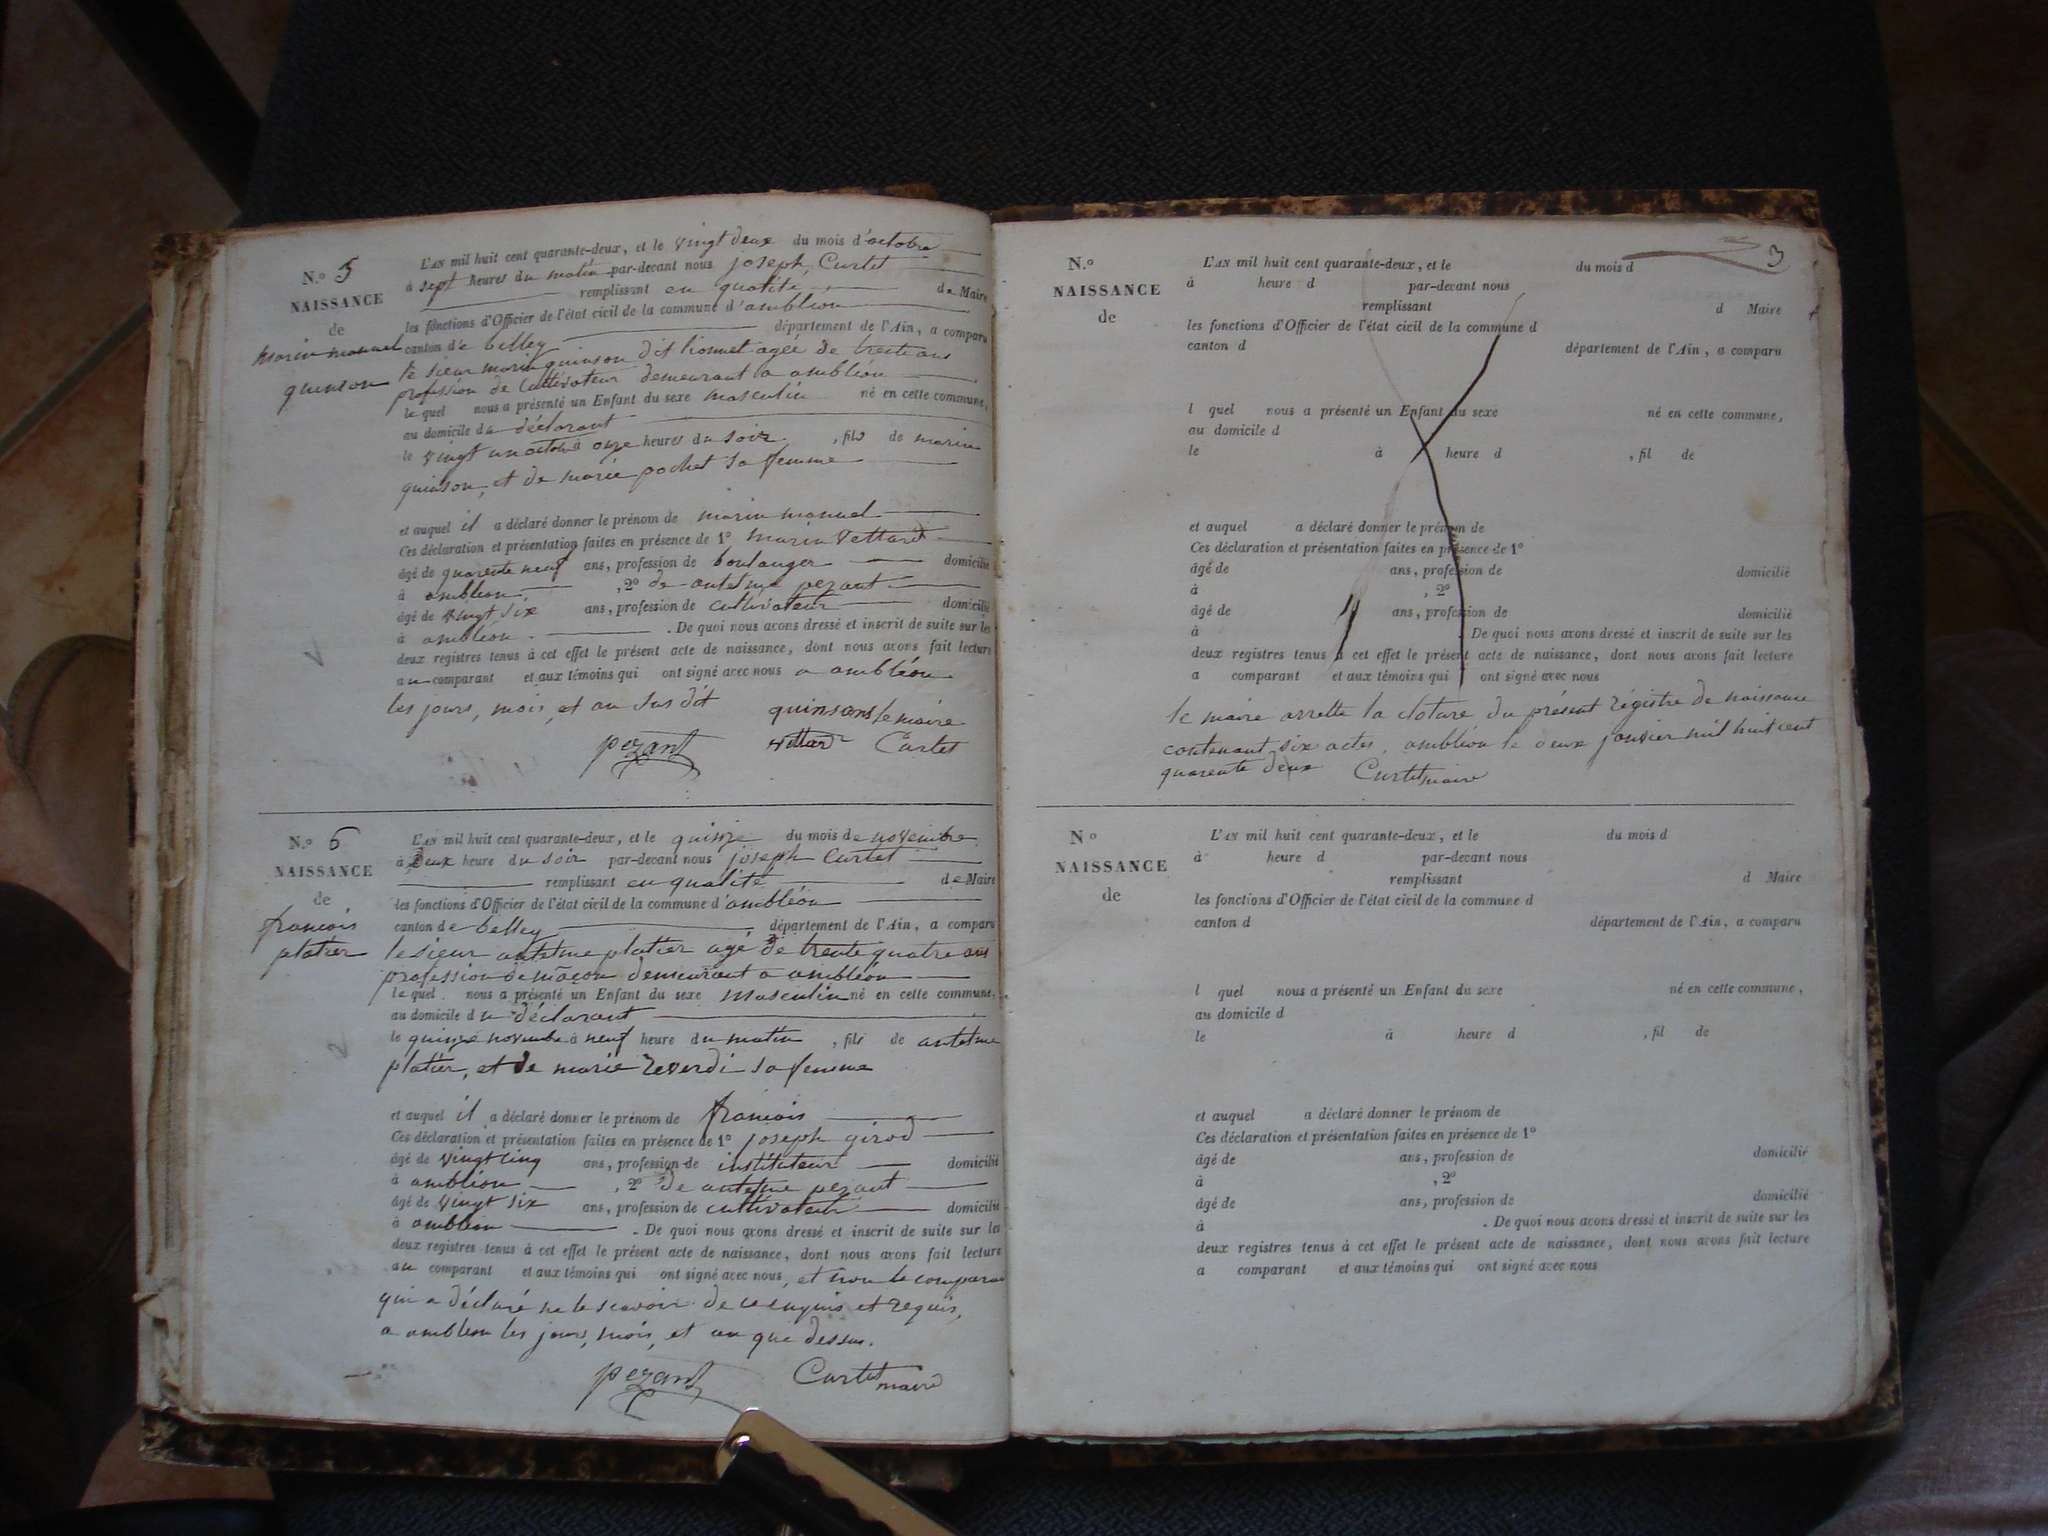 N.o 5
NAISSANCE
de
marin manuel
quinson
L'AN mil huit cent quarante-deux, et le vingt deux du mois d'octobre
à sept heures du matin par-devant nous joseph Curtet
remplissant en qualité de Maire
les fonctions d'Officier de l'état civil de la commune d'ambléon
canton de belley département de l'Ain, a comparu
le sieur marin quinson dit lionnet agée de trente ans
profession de Cultivateur demeurant a ambléon
le quel nous a présenté un Enfant du sexe masculin né en cette commune,
au domicile du déclarant
le vingt un octobre à onze heures du soir, fils de marin
quinson, et de marie pochet sa femme
et auquel il a déclaré donner le prénom de marin manuel
Ces déclaration et présentation faites en présence de 1o marin vettard
âgé de quarente neuf ans, profession de boulanger domicilié
à ambléon, 2o de antelme pezant
âgé de vingt six ans, profession de cultivateur domicilié
à ambléon. De quoi nous avons dressé et inscrit de suite sur les
deux registres tenus à cet effet le présent acte de naissance, dont nous avons fait lecture
au comparant et aux témoins qui ont signé avec nous a ambléon
les jours, mois, et an sus dit
quinson le maire
pezant vettard Curtet
N.o 6
NAISSANCE
de
francois
platier
L'AN mil huit cent quarante-deux, et le quinze du mois de novembre
à Deux heure du soir par-devant nous joseph Curtet
remplissant en qualité de Maire
les fonctions d'Officier de l'état civil de la commune d'ambléon
canton de belley département de l'Ain, a comparu
le sieur antelme platier agé de trente quatre ans
profession de maçon demeurant a ambléon
le quel nous a présenté un Enfant du sexe masculin né en cette commune,
au domicile du déclarant
le quinze novembre à neuf heure du matin, fils de antelme
platier, et de marie reverdi sa femme
et auquel il a déclaré donner le prénom de francois
Ces déclaration et présentation faites en présence de 1o joseph girod
âgé de vingt cinq ans, profession de instituteur domicilié
à ambléon, 2o de antelme pezant
âgé de vingt six ans, profession de cultivateur domicilié
à ambléon. De quoi nous avons dressé et inscrit de suite sur les
deux registres tenus à cet effet le présent acte de naissance, dont nous avons fait lecture
au comparant et aux témoins qui ont signé avec nous, et non le comparant
qui a déclaré ne le scavoir de ce enquis et requis,
a ambléon les jours, mois, et an que dessus.
pezant Curtet maire
3
N.o
NAISSANCE
de
L'AN mil huit cent quarante-deux, et le du mois d
à heure d par-devant nous
remplissant d Maire
les fonctions d'Officier de l'état civil de la commune d
canton d département de l'Ain, a comparu
l quel nous a présenté un Enfant du sexe né en cette commune,
au domicile d
le à heure d , fil de
et auquel a déclaré donner le prénom de
Ces déclaration et présentation faites en présence de 1o
âgé de ans, profession de domicilié
à , 2o
âgé de ans, profession de domicilié
à . De quoi nous avons dressé et inscrit de suite sur les
deux registres tenus à cet effet le présent acte de naissance, dont nous avons fait lecture
a comparant et aux témoins qui ont signé avec nous
le maire arrette la cloture du présent régistre de naissance
contenant six actes, ambléon le deux janvier mil huit cent
quarente deux Curtet maire
N.o
NAISSANCE
de
L'AN mil huit cent quarante-deux, et le du mois d
à heure d par-devant nous
remplissant d Maire
les fonctions d'Officier de l'état civil de la commune d
canton d département de l'Ain, a comparu
l quel nous a présenté un Enfant du sexe né en cette commune,
au domicile d
le à heure d , fil de
et auquel a déclaré donner le prénom de
Ces déclaration et présentation faites en présence de 1o
âgé de ans, profession de domicilié
à , 2o
âgé de ans, profession de domicilié
à . De quoi nous avons dressé et inscrit de suite sur les
deux registres tenus à cet effet le présent acte de naissance, dont nous avons fait lecture
a comparant et aux témoins qui ont signé avec nous